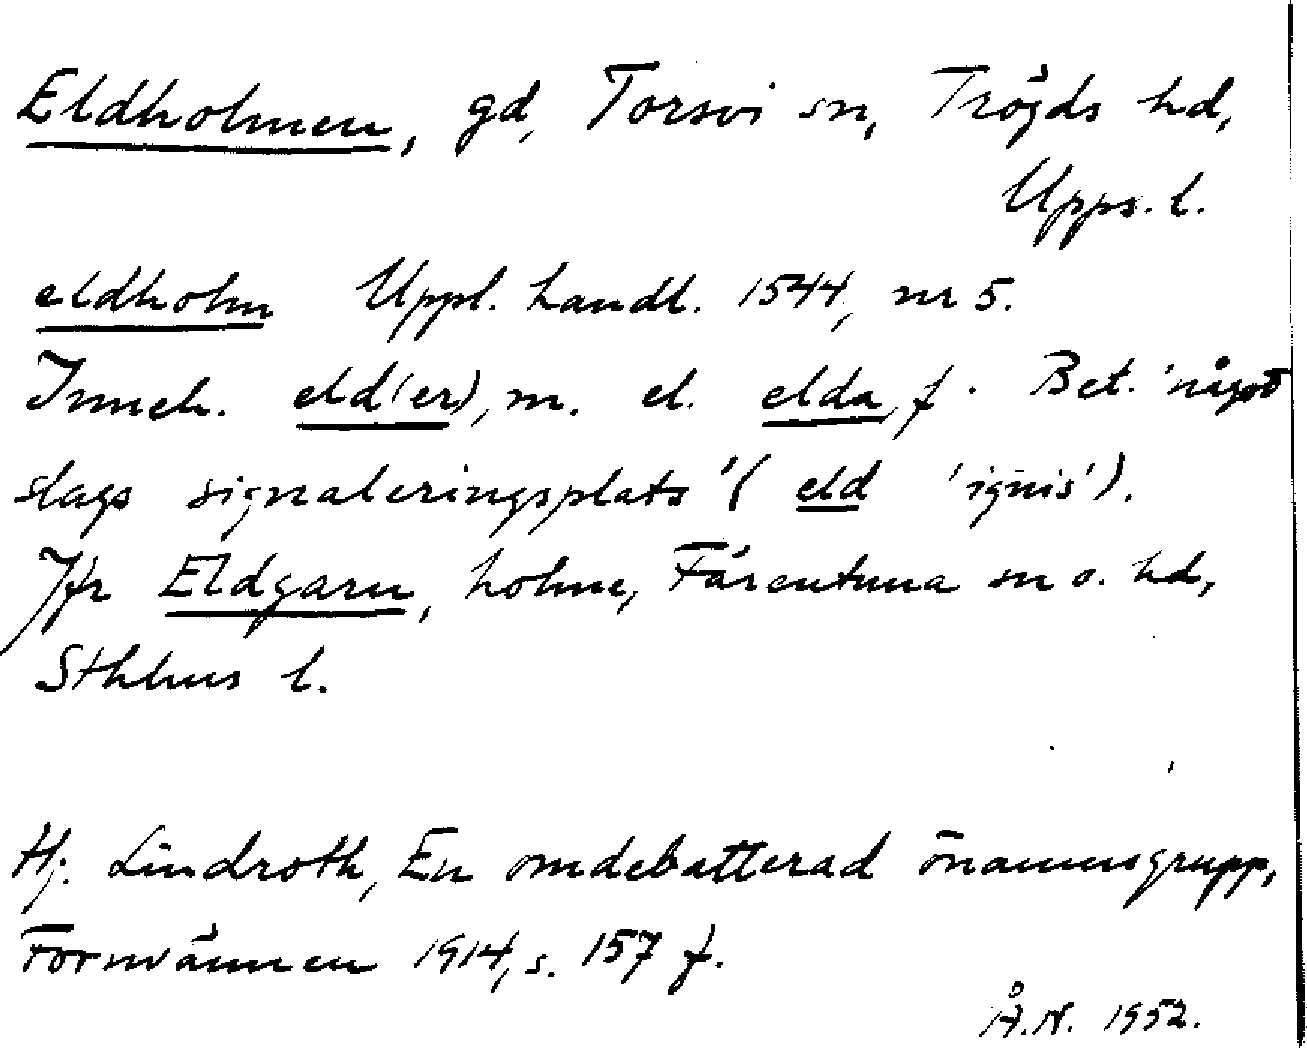 Eldholmen, gd, Torsvi sn, Trögds hd,
Upps. l.
eldholm Uppl. handl. 1544, nr 5.
Inneh. eld(er), m. el. elda, f. Bet. 'något
slags signaleringsplats' (eld 'ignis').
Jfr Eldgarn, holme, Färentuna sn o. hd,
Sthlms l.
Hj. Lindroth, En omdebatterad önamnsgrupp,
Fornvännen 1914, s. 157 f.
Å.N. 1952.